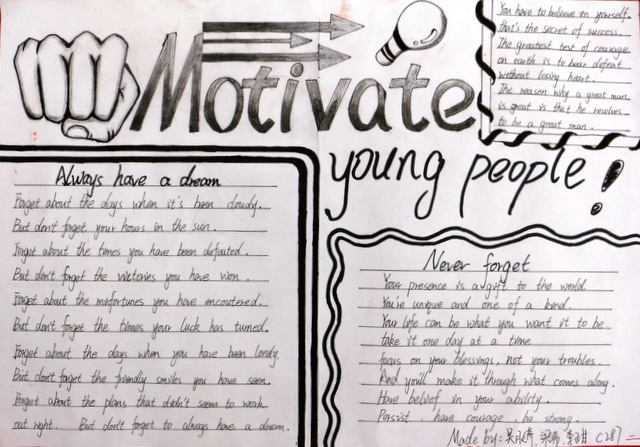 Motivate
young people!
You have to believe in yourself.
that's the secret of success.
The greatest test of courage
on earth is to bear defeat
without losing heart.
The reason why a great man
is great is that he resolves
to be a great man.
Always have a dream
Forget about the days when it's been cloudy.
But don't forget your hours in the sun.
Forget about the times you have been defeated.
But don't forget the victories you have won.
Forget about the misfortunes you have encoutered.
But don't forget the times your luck has turned.
Forget about the days when you have been lonely.
But don't forget the friendly smiles you have seen.
Forget about the plans that didn't seem to work
out right. But don't forget to always have a dream.
Never forget
Your presence is a gift to the world
You're unique and one of a kind.
Your life can be what you want it to be
take it one day at a time
focus on your blessings, not your troubles
And you'll make it through what comes along.
Have belief in your ability.
Persist. have courage. be strong.
Made by: C287